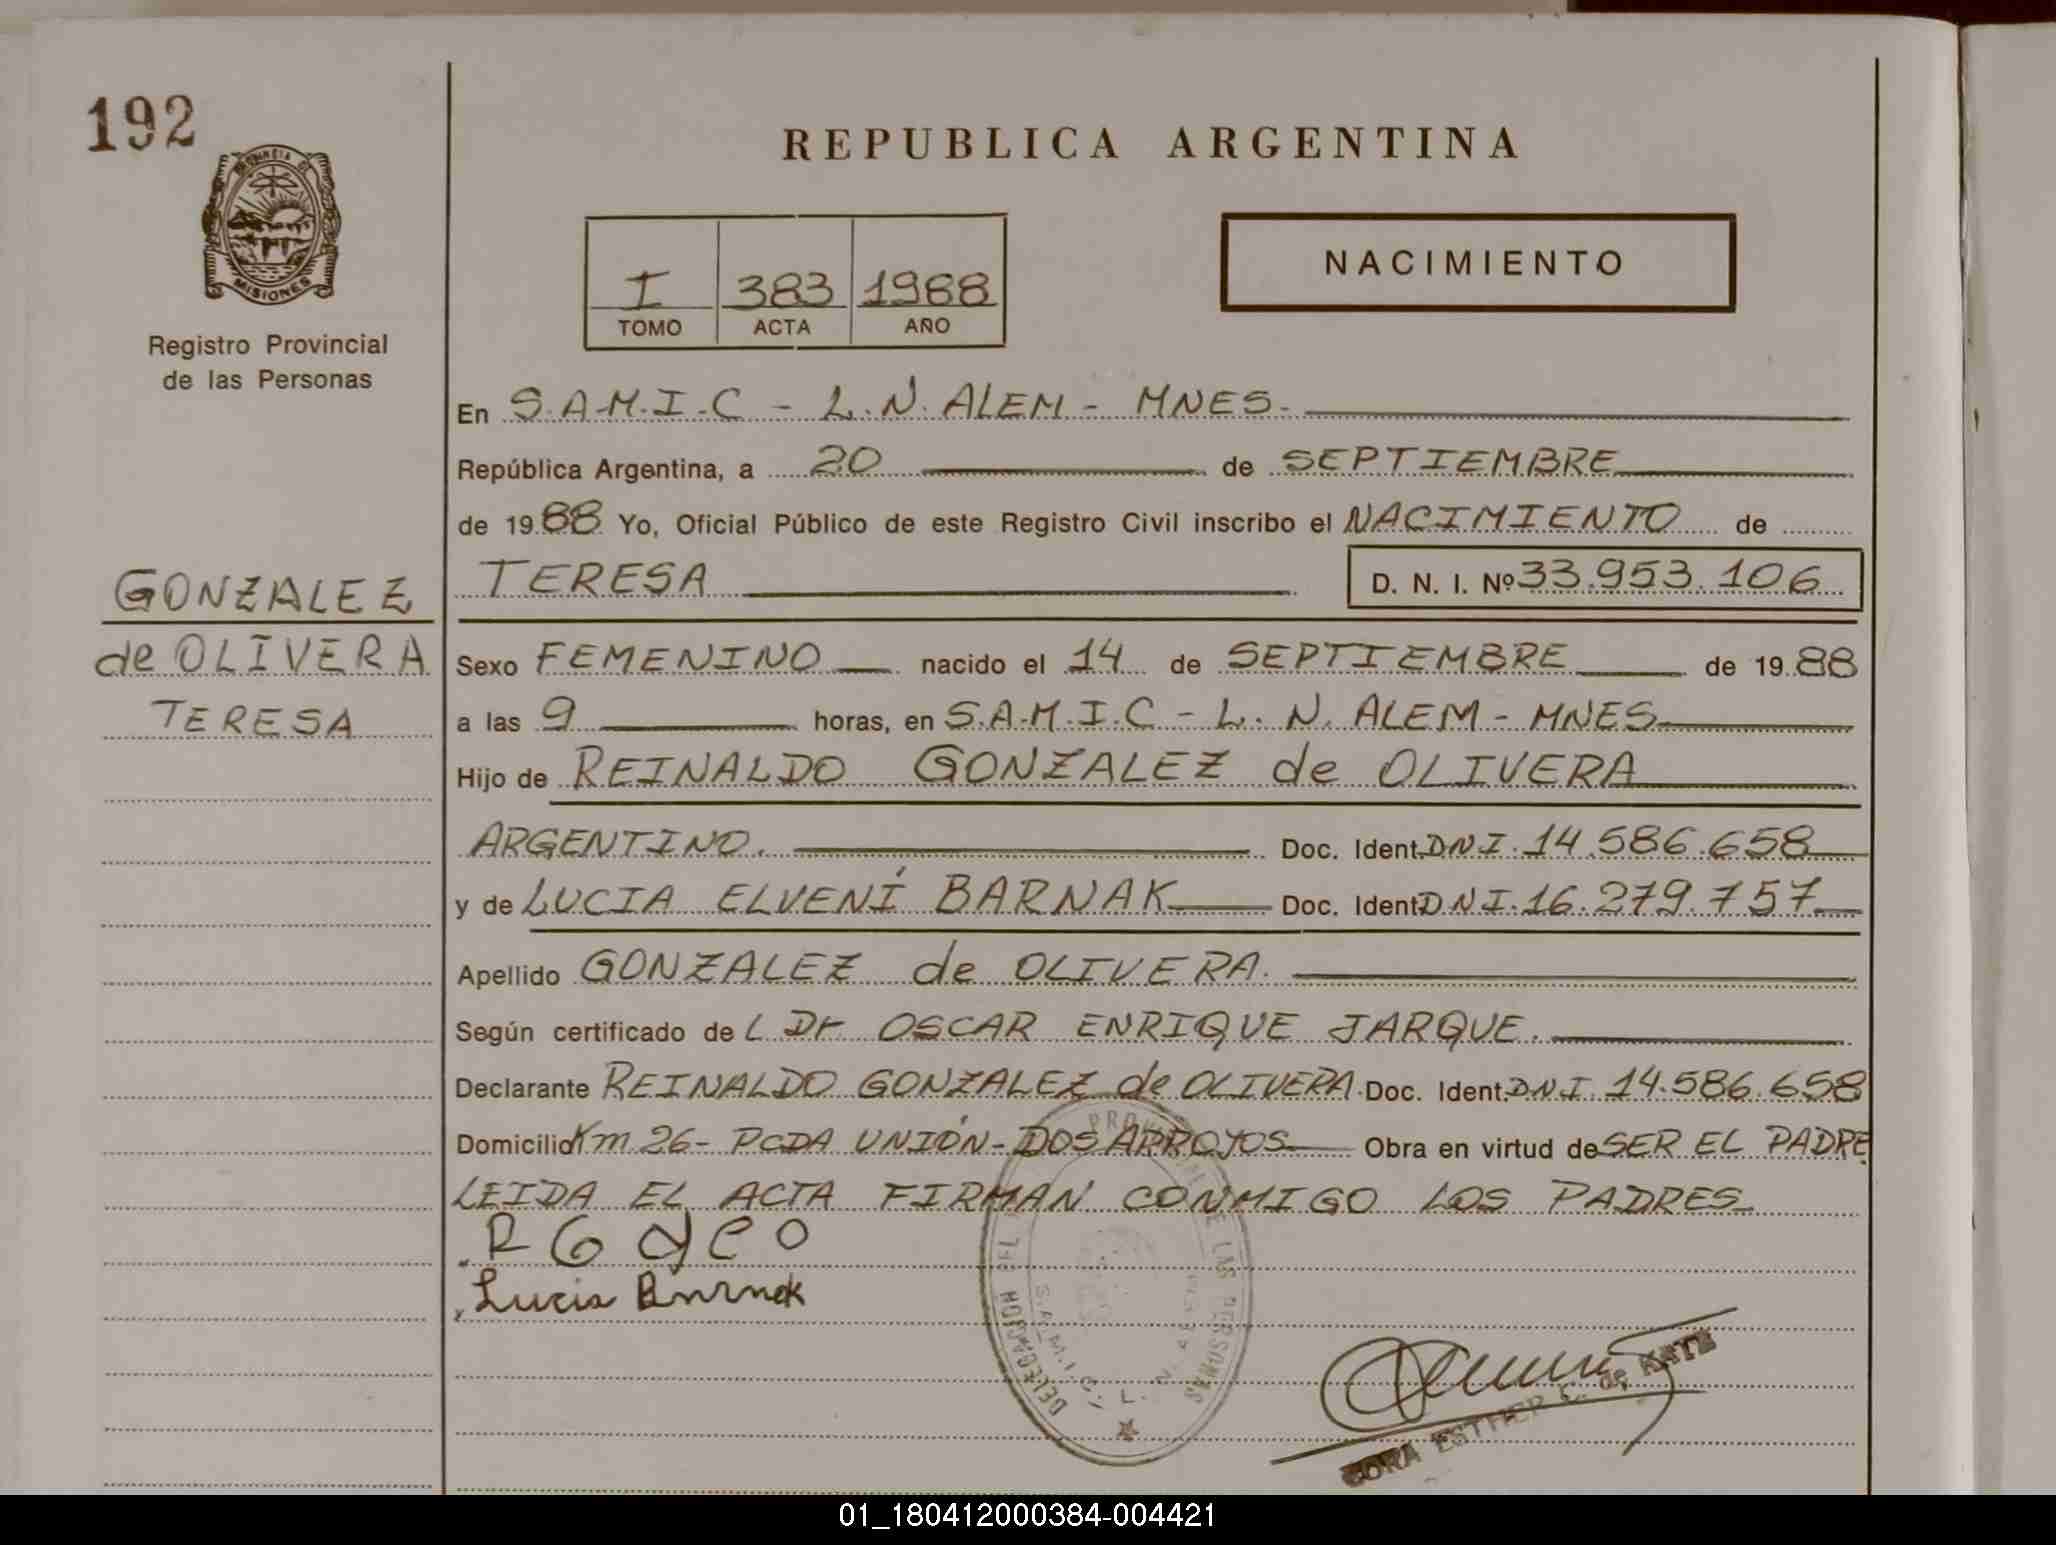 192
REPUBLICA ARGENTINA
PROVINCIA DE
MISIONES
Registro Provincial
de las Personas
I 383 1988
TOMO ACTA AÑO
NACIMIENTO
En S.A.M.I.C - L.N. ALEM - MNES.
República Argentina, a 20 de SEPTIEMBRE
de 1988 Yo, Oficial Público de este Registro Civil inscribo el NACIMIENTO de
TERESA D. N. I. Nº 33.953.106
GONZALEZ
de OLIVERA
TERESA
Sexo FEMENINO nacido el 14 de SEPTIEMBRE de 1988
a las 9 horas, en S.A.M.I.C - L. N. ALEM - MNES
Hijo de REINALDO GONZALEZ de OLIVERA
ARGENTINO. Doc. Ident. DNI. 14.586.658
y de LUCIA ELVENÍ BARNAK Doc. Ident. DNI. 16.279.757
Apellido GONZALEZ de OLIVERA.
Según certificado del Dr. OSCAR ENRIQUE JARQUE.
Declarante REINALDO GONZALEZ de OLIVERA. Doc. Ident. DNI. 14.586.658
Domicilio Km 26 - PCDA UNIÓN - DOS ARROYOS Obra en virtud de SER EL PADRE
LEIDA EL ACTA FIRMAN CONMIGO LOS PADRES
R G de O
Lucia Barnak
DELEGACION DEL PROVINCIAL DE LAS PERSONAS
S.A.M.I.C. L. N. ALEM
CORA ESTHER C. de KATZ
01_180412000384-004421